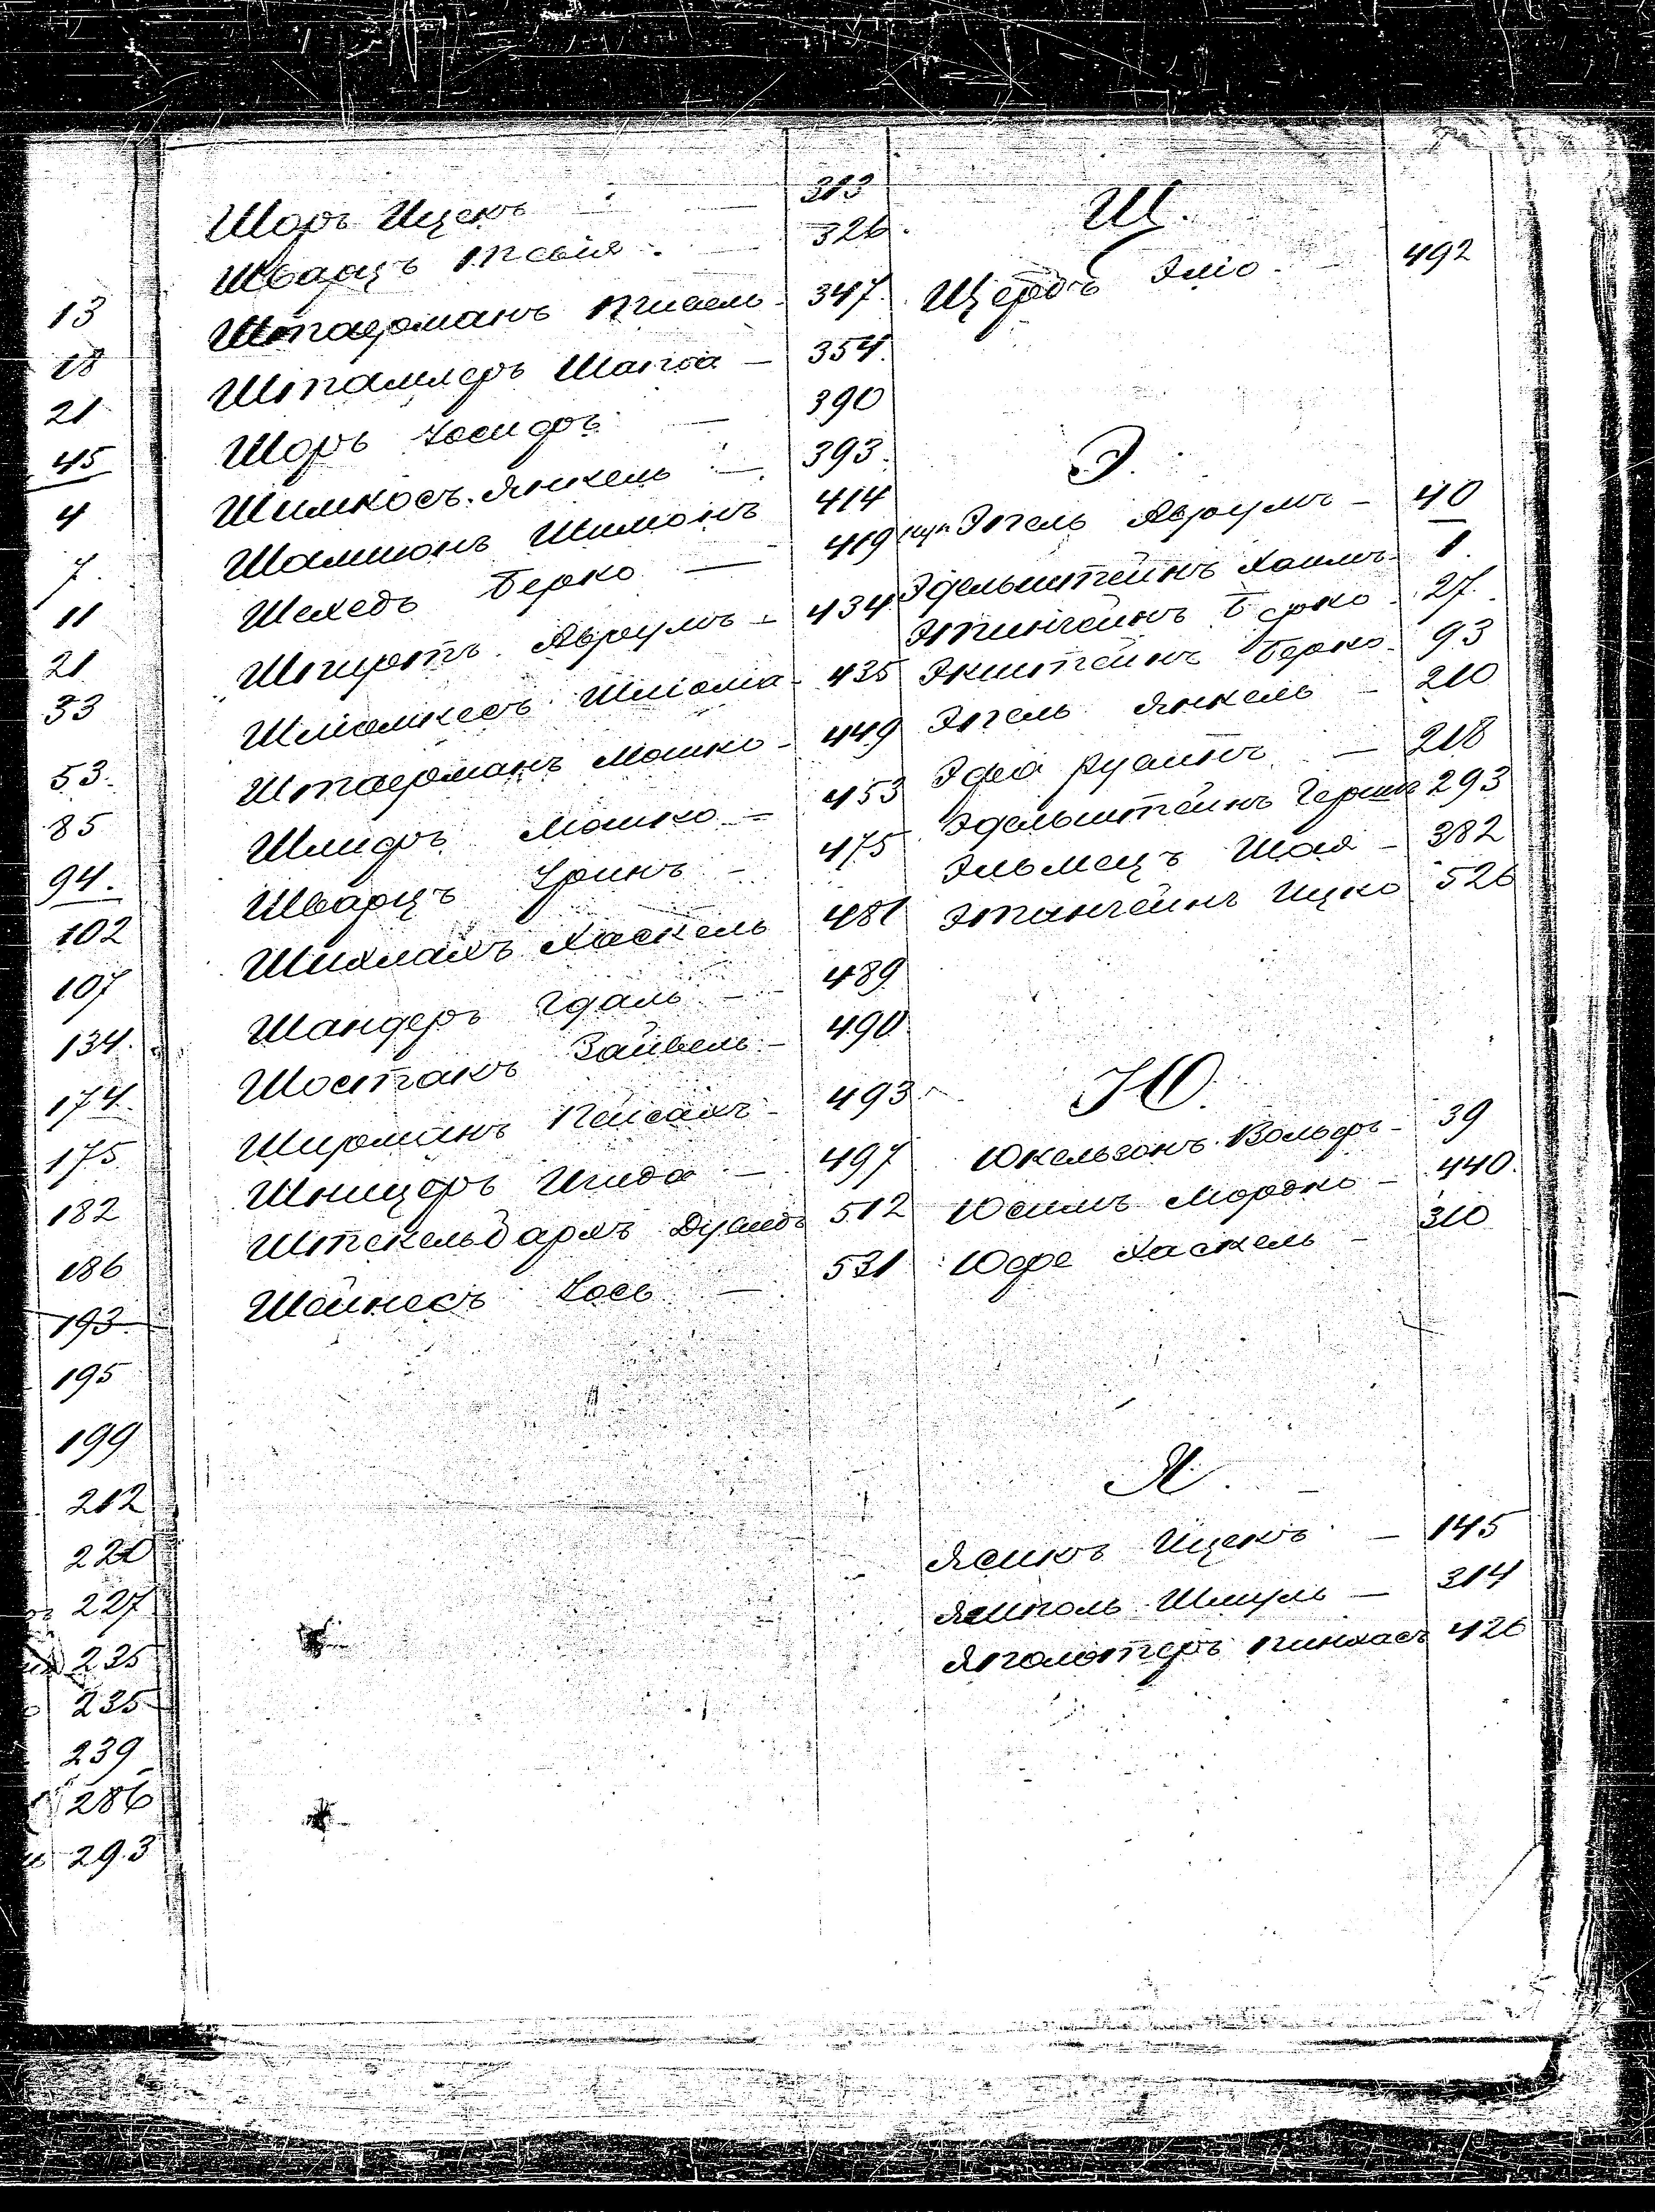 13
18
21
45
4
7.
11
21
33
53.
85
94.
102
107
134.
174.
175
182
186
193.
195
199
212
220
227
235
235
239
286
293
Шоръ Ицекъ — 313
Шварцъ — 326.
Штаерманъ — 347.
Штамлеръ — 354.
Шоръ Іосифъ — 390
Шимкосъ Янкель — 393.
Шамшонъ Шимонъ 414
Шехедъ Берко — 419
Авруумъ — 434
Шліомкесъ Шліома — 435
Штаерманъ Мошко — 449
Шлифъ Мошко — 453
Шварцъ — 475
Шихлахъ Хаскель 481
Шандеръ Гдаль — 489
Шостакъ Зайвель — 490
Ширманъ Пейсахъ — 493
Шницеръ — 497
Штекельбархъ 512
Шейнесъ Іось — 531
Щ.
Щербъ Эліо. — 492
Э.
Энгель Авруумъ — 40
Эдельштейнъ Хаимъ — 1.
Этингеинъ Берко. 27.
Экштейнъ Берко. 93
Энгель Янкель — 210
— 218
Эдельштейнъ Гершъ 293
Эльмецъ Шая — 382
Этингеинъ Ицко 526
Ю.
Юкельзонъ Вольфъ — 39
Юсимъ Мордко — 440.
Юфе Хаскель — 310
Я.
Ясикъ Ицекъ — 145
Ямполь Шмуль — 314
Пинхасъ 426